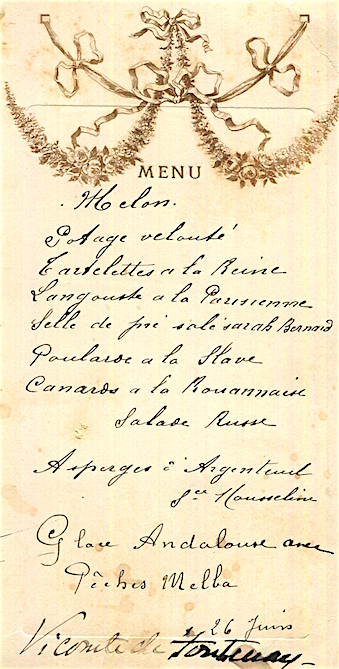 MENU
Melon.
Potage velouté
Tartelettes a la Reine
Langouste a la Parisienne
Selle de pré salé sarah Bernard
Poularde a la Slave
Canards a la Rouannaise
Salade Russe
Asperges d'Argenteuil
Sce Mousseline
Glace Andalouse avec
Pêches Melba
26 Juin
Vicomte de Fontenay